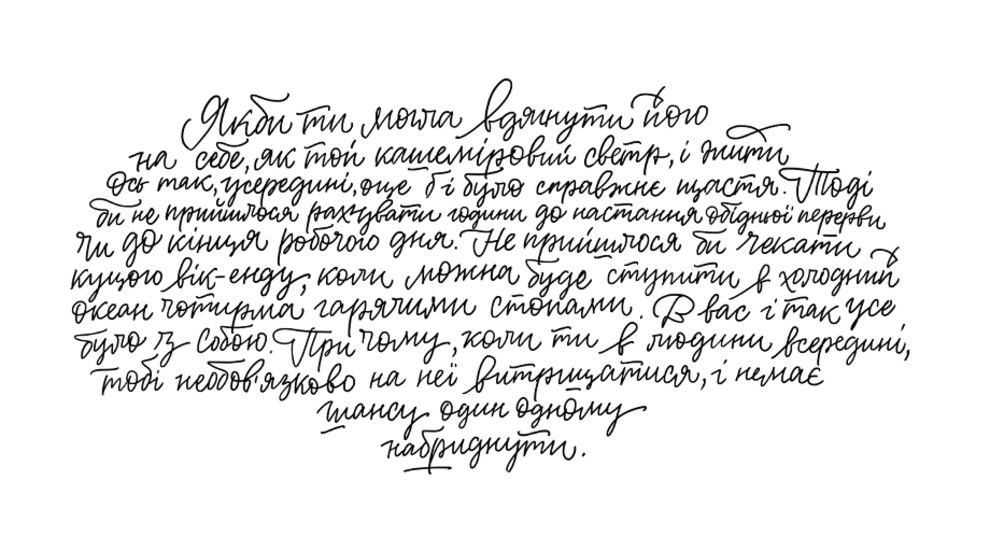 Якби ти могла вдягнути його
на себе, як той кашеміровий светр, і жити
ось так, усередині, оце б і було справжнє щастя. Тоді
би не прийшлося рахувати години до настання обідньої перерви
чи до кінця робочого дня. Не прийшлося би чекати
куцого вік-енду, коли можна буде ступити в холодний
океан чотирма гарячими стопами. В вас і так усе
було з собою. Причому, коли ти в людини всередині,
тобі необов'язково на неї витріщатися, і немає
шансу один одному
набриднути.